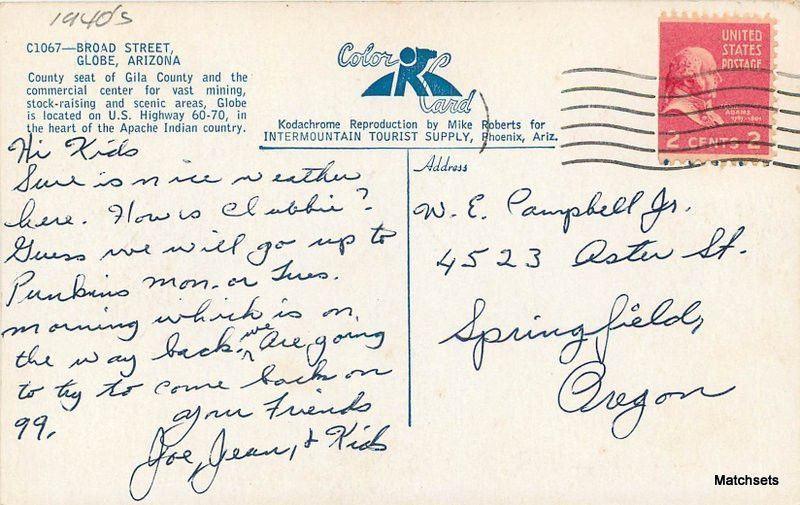 1940's
C1067—BROAD STREET,
GLOBE, ARIZONA
County seat of Gila County and the
commercial center for vast mining,
stock-raising and scenic areas, Globe
is located on U.S. Highway 60-70, in
the heart of the Apache Indian country.
Color
Card
Kodachrome Reproduction by Mike Roberts for
INTERMOUNTAIN TOURIST SUPPLY, Phoenix, Ariz.
UNITED
STATES
POSTAGE
ADAMS
2 CENTS 2
Hi Kids
Sure is nice weather
here. How is Clubbie?
Guess we will go up to
Punkins Mon. or Tues.
morning which is on
the way back. we Are going
to try to come back on
99.
Your Friends
Joe, Jean, & Kids
Address
W. E. Campbell Jr.
4523 Aster St.
Springfield,
Oregon
Matchsets